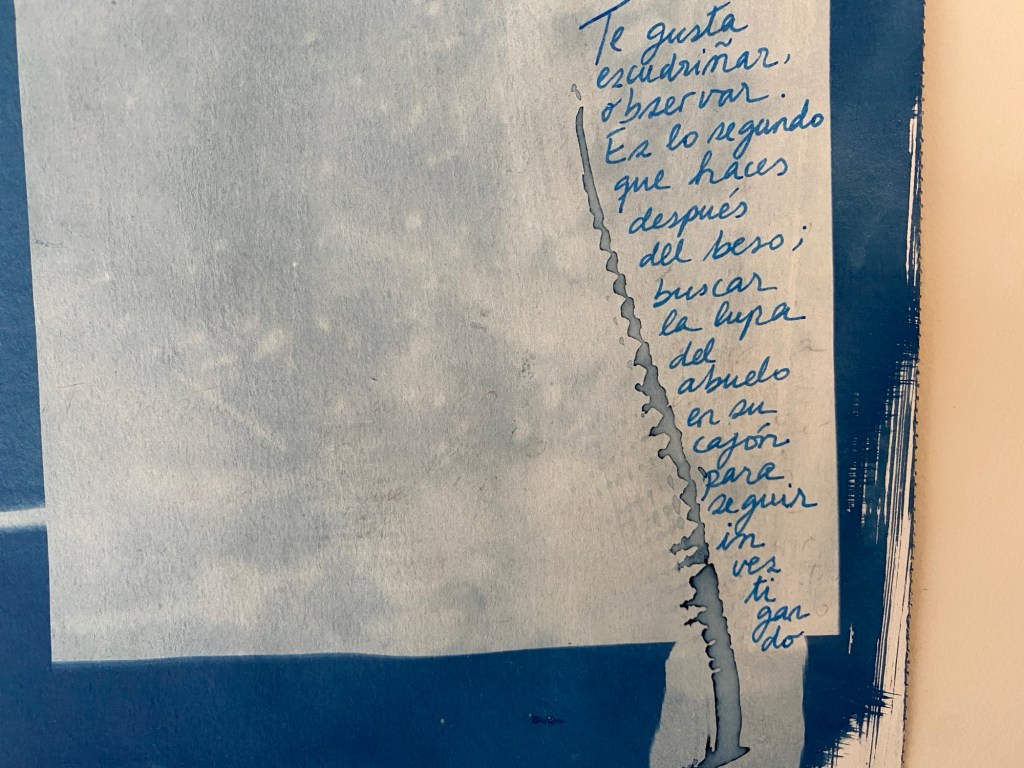 Te gusta
escudriñar,
observar.
Es lo segundo
que haces
después
del beso;
buscar
la lupa
del
abuelo
en su
cajón
para
seguir
in
ves
ti
gan
do